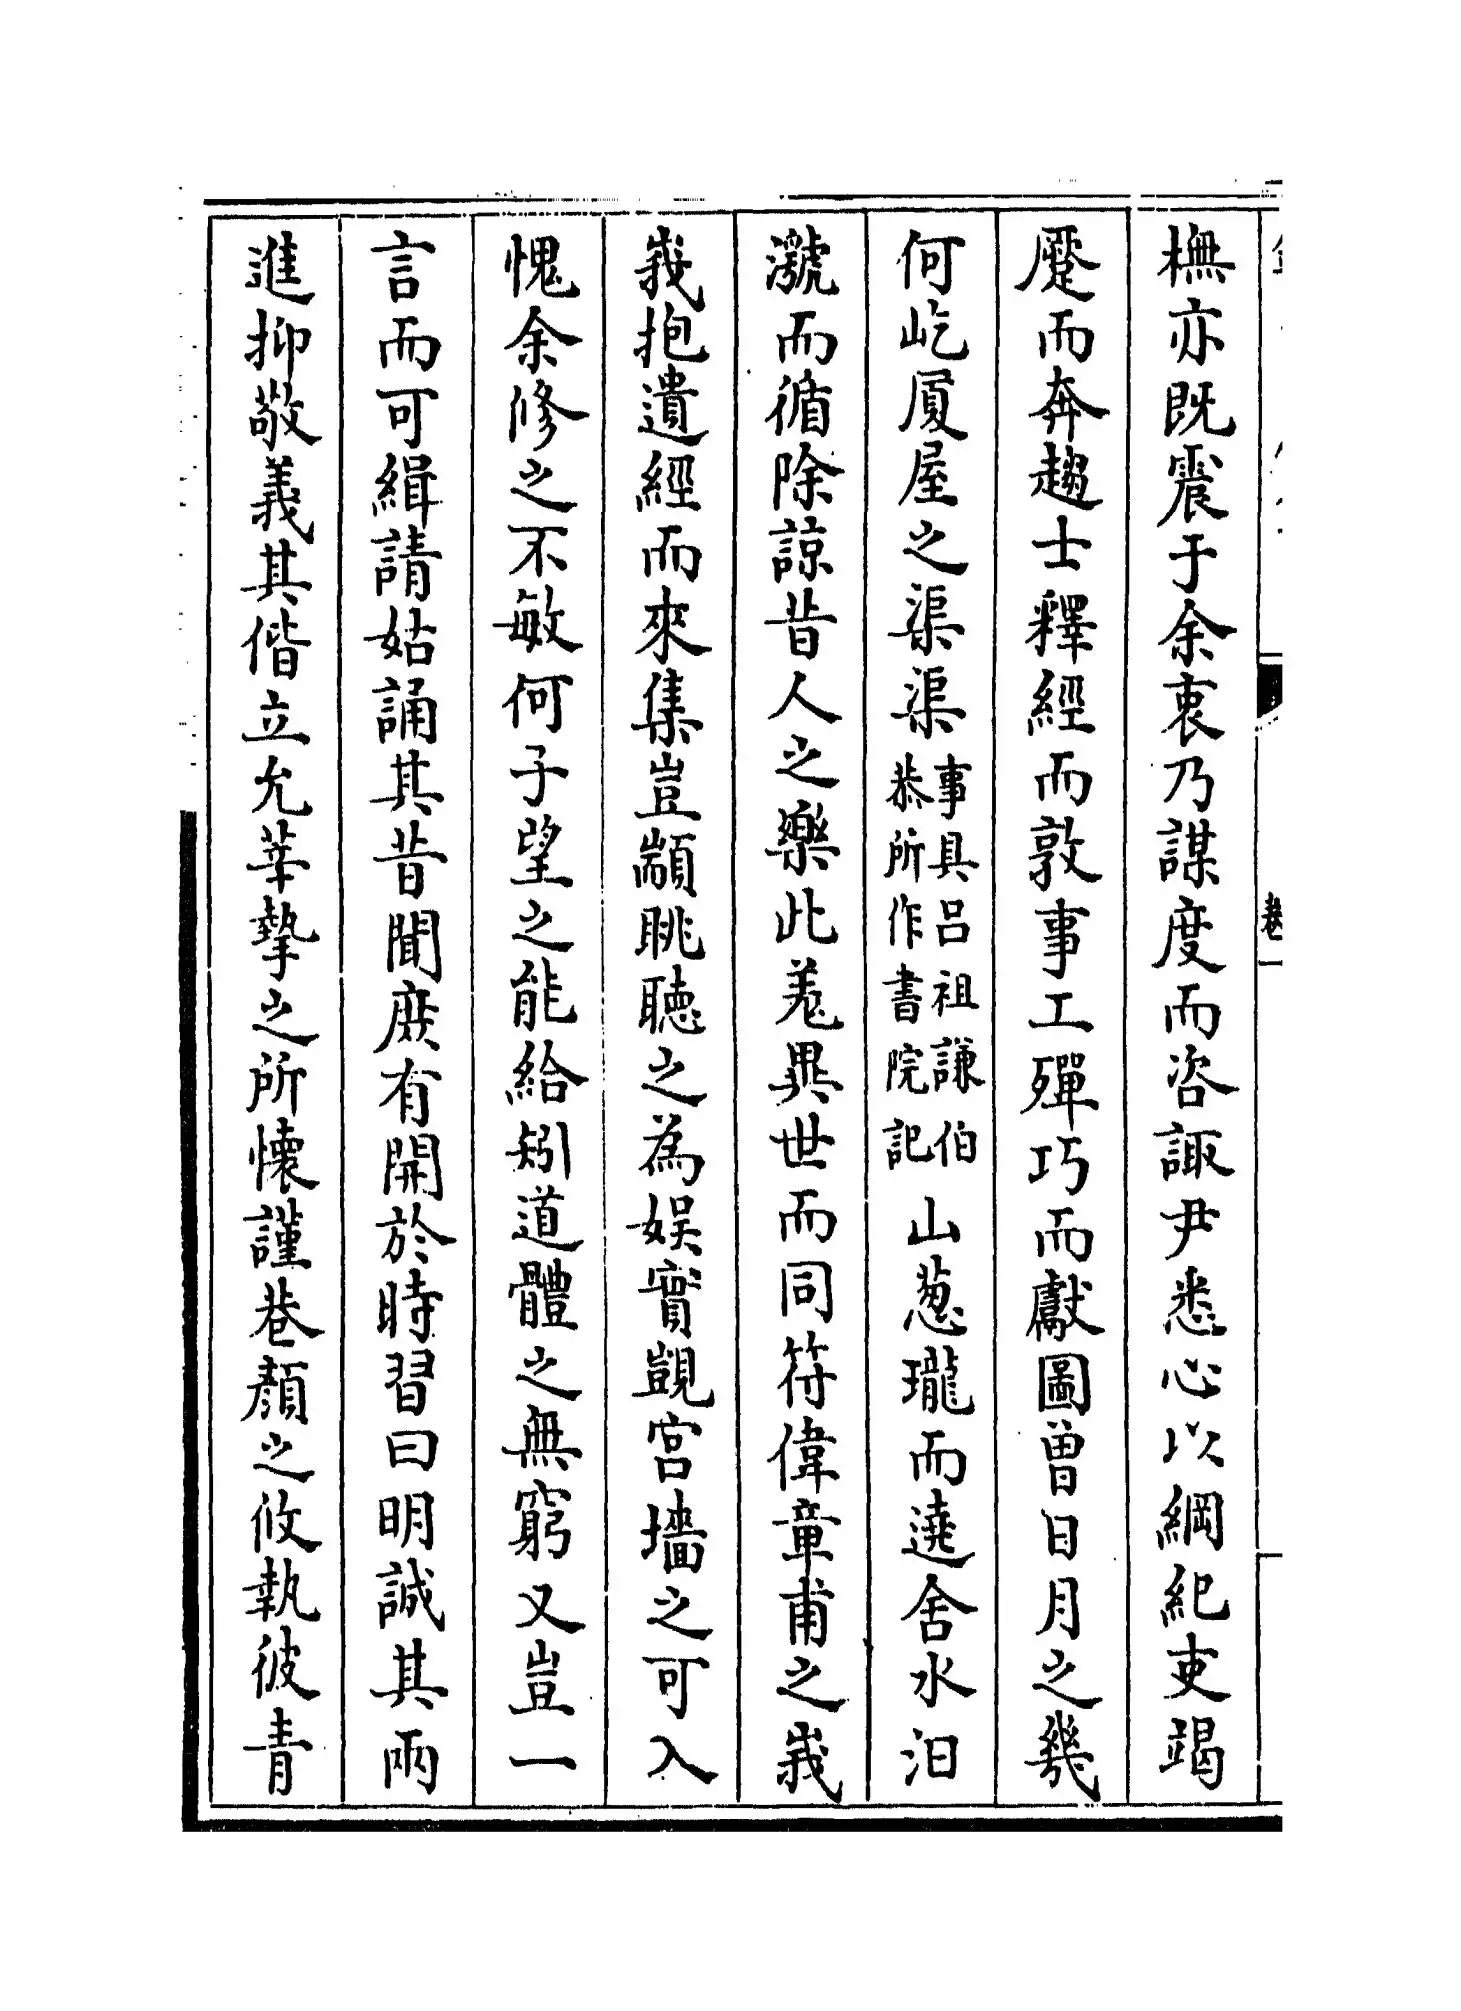 橅亦既震于余衷乃謀度而咨諏尹悉心以綱紀吏竭
蹙而奔趨士釋經而敦事工殫巧而獻圖曾日月之幾
何屹厦屋之渠渠事具吕祖謙伯恭所作書院記山葱瓏而遶舍水汨
㶁而循除諒昔人之樂此羌異世而同符偉章甫之峩
峩抱遺經而來集豈顓眺聽之為娱實覬宫墻之可入
愧余修之不敏何子望之能給矧道體之無窮又豈一
言而可緝請姑誦其昔聞庶有開於時習曰明誠其兩
進抑敬義其偕立允莘摯之所懷謹巷顔之攸執彼青
卷一